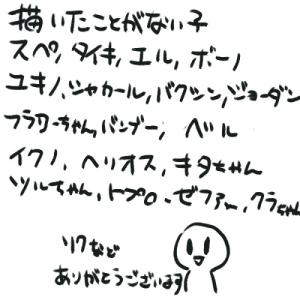 描いたことがない子
スペ,タイキ,エル,ボーノ
ユキノ,シャカール,バクシン,ジョーダン
フラワーちゃん,バンブー,ベル
イクノ,ヘリオス,キタちゃん
ツルちゃん,トプロ,ゼファー,クラちゃん
リクなど
ありがとうございます